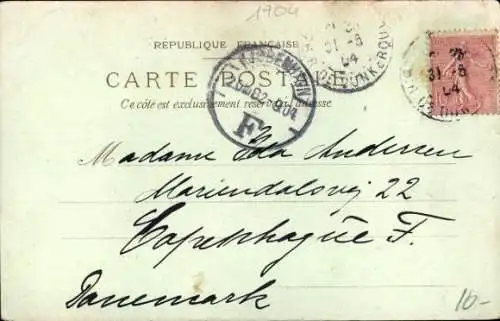 1904
RÉPUBLIQUE FRANÇAISE
CARTE POSTALE
Ce côté est exclusivement réservé à l'adresse
31 -8
04
31 -8
04
KJØBENHAVN
2-9.04
F
Madame Ida Andersen
Mariendalsvej 22
Copenhague F.
Danemark
10-